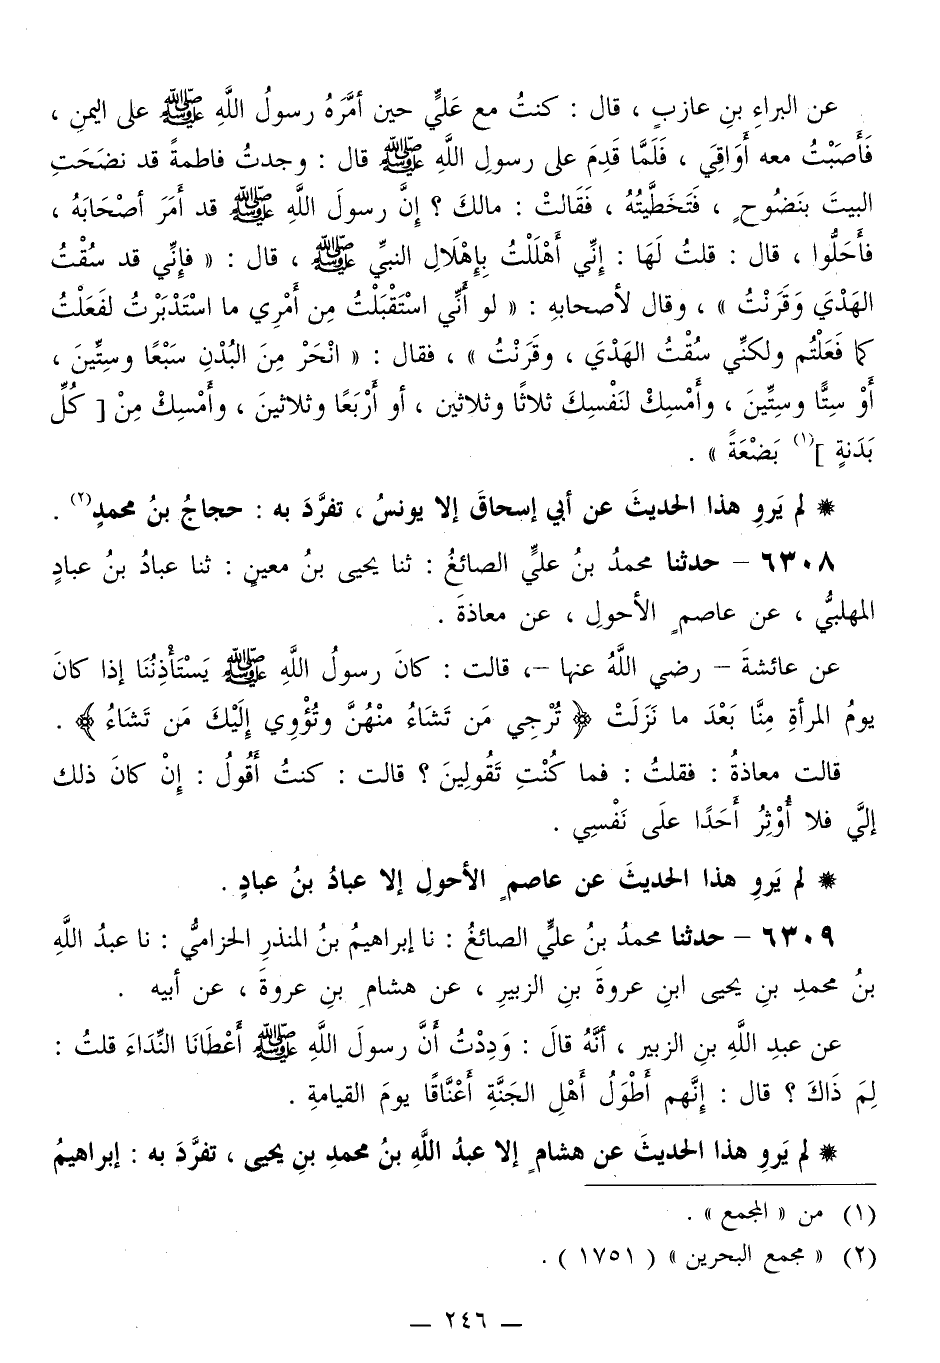 عن البراءِ بنِ عازبٍ ، قال : كنتُ مع عَليٍّ حين أمَّرَهُ رسولُ اللَّهِ ﷺ على اليمنِ ،
فَأَصَبْتُ معه أَوَاقِي ، فَلَمَّا قَدِمَ على رسولِ اللَّهِ ﷺ قال : وجدتُ فاطمةً قد نضَحَتِ
البيتَ بنَضُوحٍ ، فَتَخَطَّيتُهُ ، فَقَالتْ : مالكَ ؟ إنَّ رسولَ اللَّهِ ﷺ قد أمَرَ أصْحَابَهُ ،
فأَحَلُّوا ، قال : قلتُ لَهَا : إنِّي أَهْلَلْتُ بِإهْلَالِ النبيِّ ﷺ ، قال : « فإنِّي قد سُقْتُ
الهَدْيَ وَقَرَنْتُ » ، وقال لأصحابهِ : « لو أنِّي اسْتَقْبَلْتُ مِن أَمْرِي ما اسْتَدْبَرْتُ لفَعَلْتُ
كما فَعَلْتُم ولكنِّي سُقْتُ الهَدْيَ ، وقرَنْتُ » ، فقال : « انْحَرْ مِنَ البُدْنِ سَبْعًا وستِّينَ ،
أَوْ ستًّا وستِّينَ ، وأَمْسِكْ لنَفْسِكَ ثلاثًا وثلاثين ، أو أرْبَعًا وثلاثينَ ، وأَمْسِكْ مِنْ [ كُلِّ
بَدَنةٍ ](١) بَضْعَةً » .
* لم يَروِ هذا الحديثَ عن أبي إسحاقَ إلا يونسُ ، تفرَّدَ به : حجاجُ بنُ محمدٍ(٢) .
٦٣٠٨ – حدثنا محمدُ بنُ عليٍّ الصائغُ : ثنا يحيى بنُ معينٍ : ثنا عبادُ بنُ عبادٍ
المهلبيُّ ، عن عاصمٍ الأحولِ ، عن معاذةَ .
عن عائشةَ – رضي اللَّهُ عنها –، قالت : كانَ رسولُ اللَّهِ ﷺ يَسْتَأْذِنُنَا إذا كانَ
يومُ المرأةِ مِنَّا بَعْدَ ما نَزَلَتْ ﴿ تُرْجِي مَن تَشَاءُ منْهُنَّ وتُؤْوِي إلَيْكَ مَن تَشَاءُ ﴾ .
قالت معاذةُ : فقلتُ : فما كُنْتِ تَقُولينَ ؟ قالت : كنتُ أَقُولُ : إنْ كانَ ذلك
إليَّ فلا أُوْثِرُ أَحَدًا علَى نَفْسِي .
* لم يَروِ هذا الحديثَ عن عاصمٍ الأحولِ إلا عبادُ بنُ عبادٍ .
٦٣٠٩ – حدثنا محمدُ بنُ عليٍّ الصائغُ : نا إبراهيمُ بنُ المنذرِ الحزاميُّ : نا عبدُ اللَّهِ
بنُ محمدِ بنِ يحيى ابنِ عروةَ بنِ الزبيرِ ، عن هشامِ بنِ عروةَ ، عن أبيه .
عن عبدِ اللَّهِ بنِ الزبير ، أنَّهُ قالَ : وَدِدْتُ أَنَّ رسولَ اللَّهِ ﷺ أَعْطَانَا النِّدَاءَ قلتُ :
لِمَ ذَاكَ ؟ قال : إنَّهم أَطْوَلُ أَهْلِ الجَنَّةِ أَعْنَاقًا يومَ القيامةِ .
* لم يَروِ هذا الحديثَ عن هشامٍ إلا عبدُ اللَّهِ بنُ محمدِ بنِ يحيى ، تفرَّدَ به : إبراهيمُ
(١) من « المجمع » .
(٢) « مجمع البحرين » ( ١٧٥١ ) .
— ٢٤٦ —